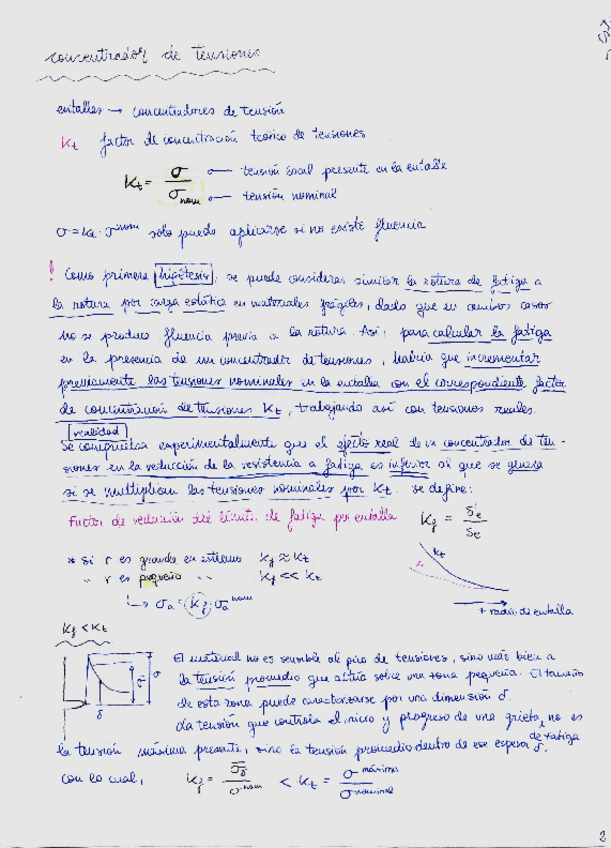 concentrador de tensiones
entallas → concentradores de tensión
Kt factor de concentración teórico de tensiones
Kt = σ / σnom
σ tensión local presente en la entalla
tensión nominal
σ = Kt · σnom solo puede aplicarse si no existe fluencia
! Como primera hipótesis, se puede considerar similar la rotura de fatiga a
la rotura por carga estática en materiales frágiles, dado que en ambos casos
no se produce fluencia previa a la rotura. Así, para calcular la fatiga
en la presencia de un concentrador de tensiones, habría que incrementar
previamente las tensiones nominales en la entalla con el correspondiente factor
de concentración de tensiones Kt, trabajando así con tensiones reales.
realidad
Se comprueba experimentalmente que el efecto real de un concentrador de ten-
siones en la reducción de la resistencia a fatiga es inferior al que se genera
si se multiplican las tensiones nominales por Kt. se define:
Factor de reducción del límite de fatiga por entalla Kf = S'e / Se
* Si r es grande en extremo Kf ≈ Kt
" r es pequeño " " Kf << Kt
↳ σa = Kf · σa nom
Kt
+ radio de entalla
Kf < Kt
El material no es sensible al pico de tensiones, sino más bien a
la tensión promedio que actúa sobre una zona pequeña. El tamaño
de esta zona puede caracterizarse por una dimensión δ.
La tensión que controla el inicio y progreso de una grieta, no es
de fatiga
la tensión máxima presente, sino la tensión promedio dentro de ese espesor δ,
σ̄ σ
δ
con lo cual, Kf = σ̄δ / σnom < Kt = σ máxima / σ nominal
2